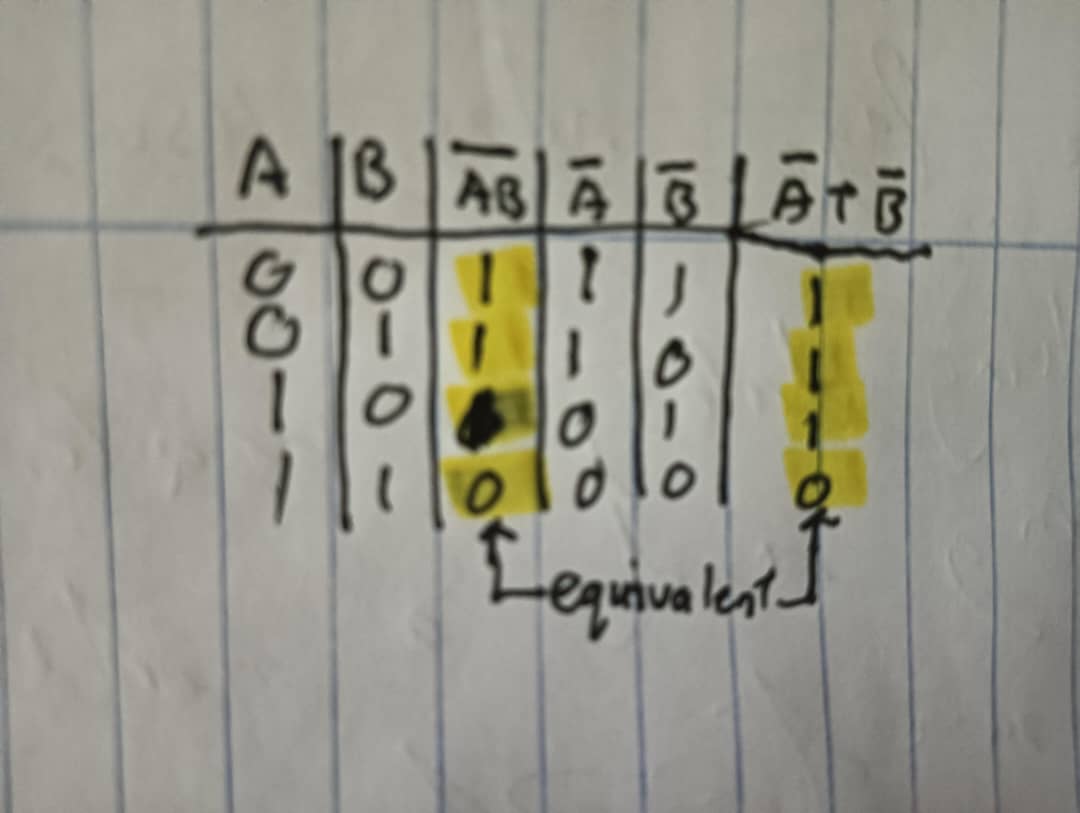 A B A̅B̅ A̅ B̅ A̅ + B̅
0 0 1 1 1 1
0 1 1 1 0 1
1 0 0 1 1
1 1 0 0 0 0
equivalent